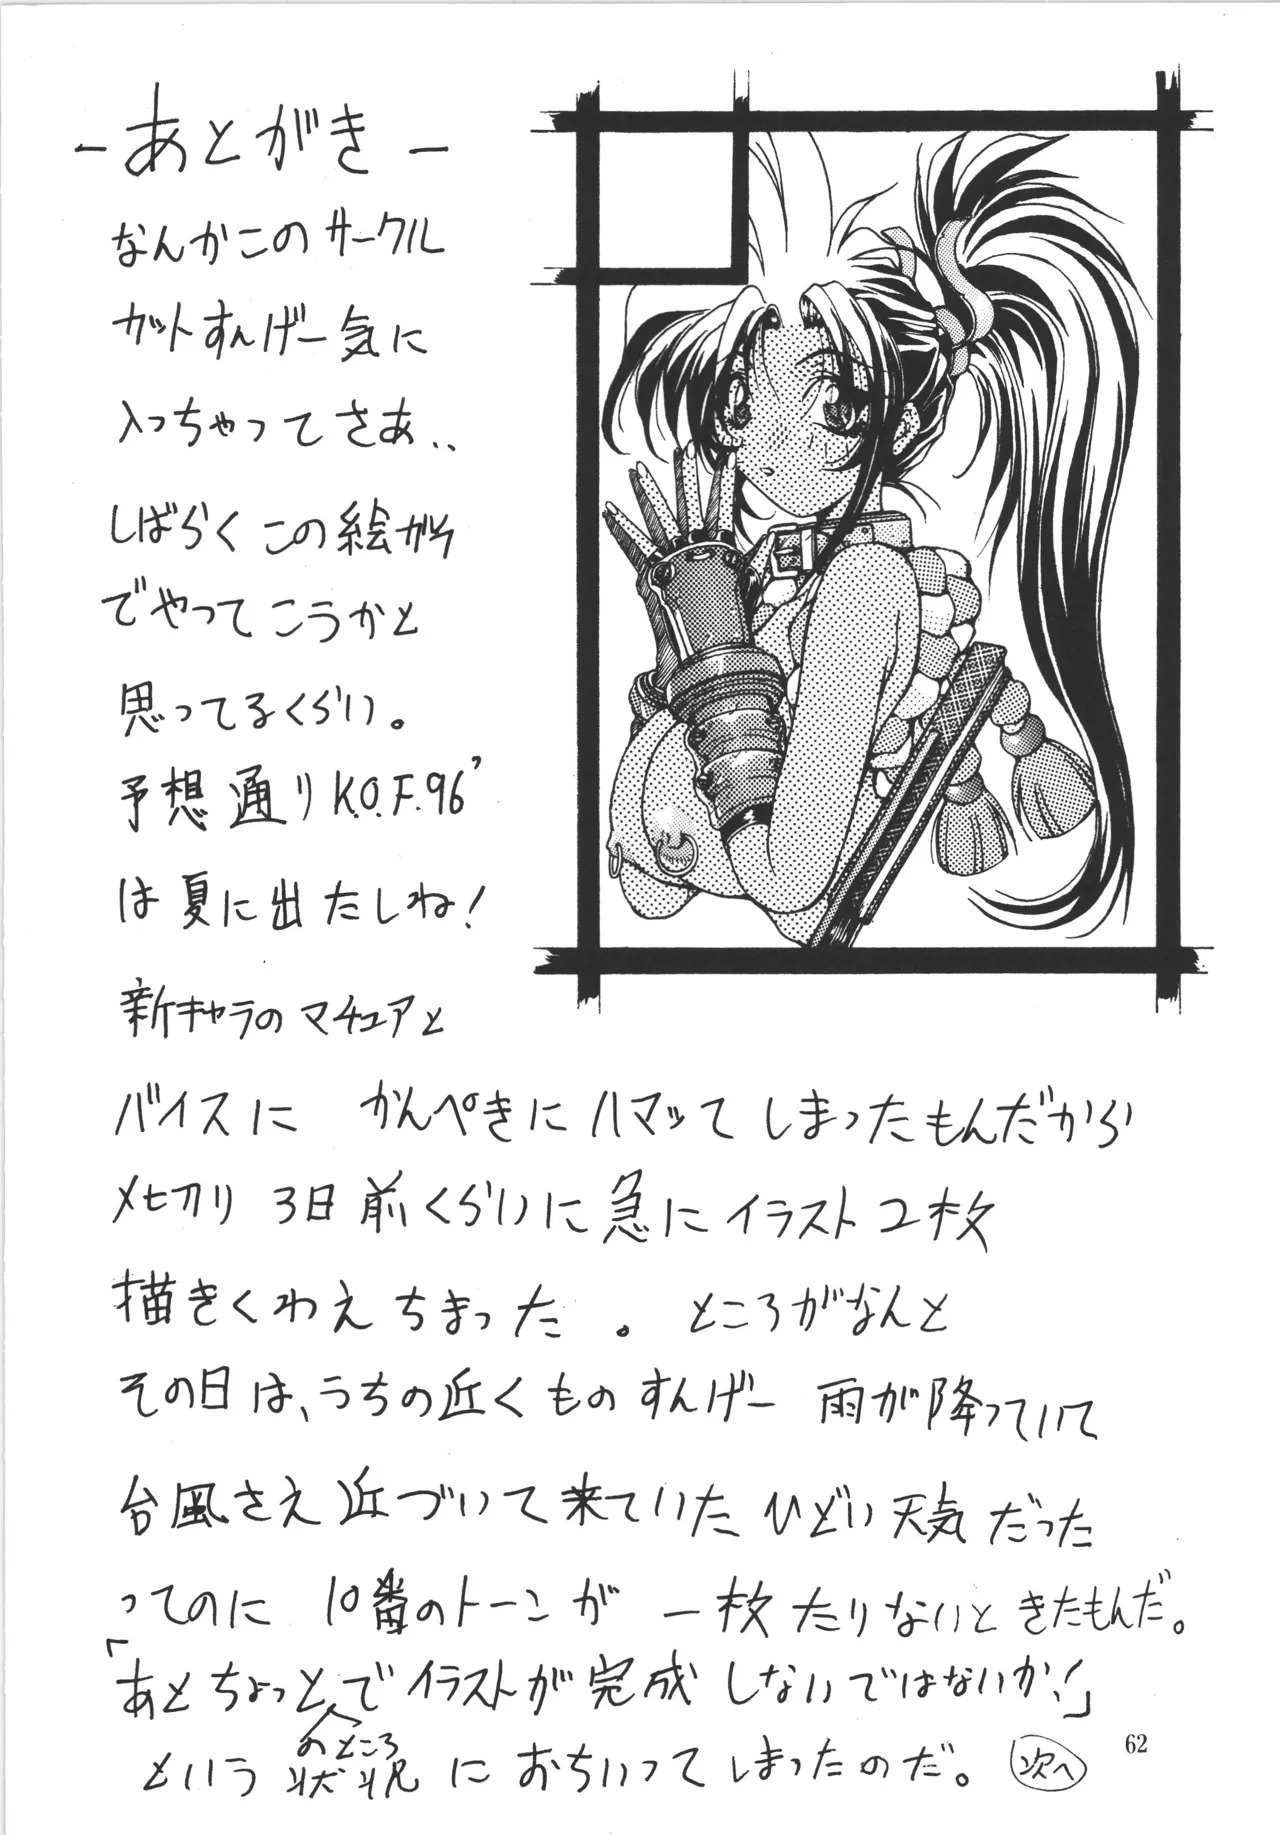 －あとがき－
なんかこのサークル
カットすんげー気に
入っちゃってさあ..
しばらくこの絵がら
でやってこうかと
思ってるくらい。
予想通りK.O.F.96'
は夏に出たしね!
新キャラのマチュアと
バイスに かんぺきにハマッてしまったもんだから
〆切り3日前くらいに急にイラスト2枚
描きくわえちまった。ところがなんと
その日は、うちの近くものすんげー雨が降っていて
台風さえ近づいて来ていたひどい天気だった
ってのに 10番のトーンが 一枚たりないときたもんだ。
「あとちょっとのところでイラストが完成しないではないか!」
という状況におちいってしまったのだ。 次へ
62